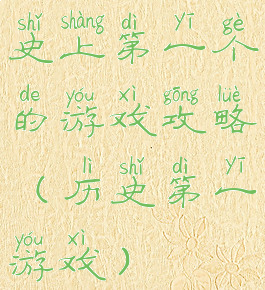 shǐ shàng dì yī gè
史上第一个
de yóu xì gōng luè
的游戏攻略
lì shǐ dì yī
(历史第一
yóu xì
游戏)